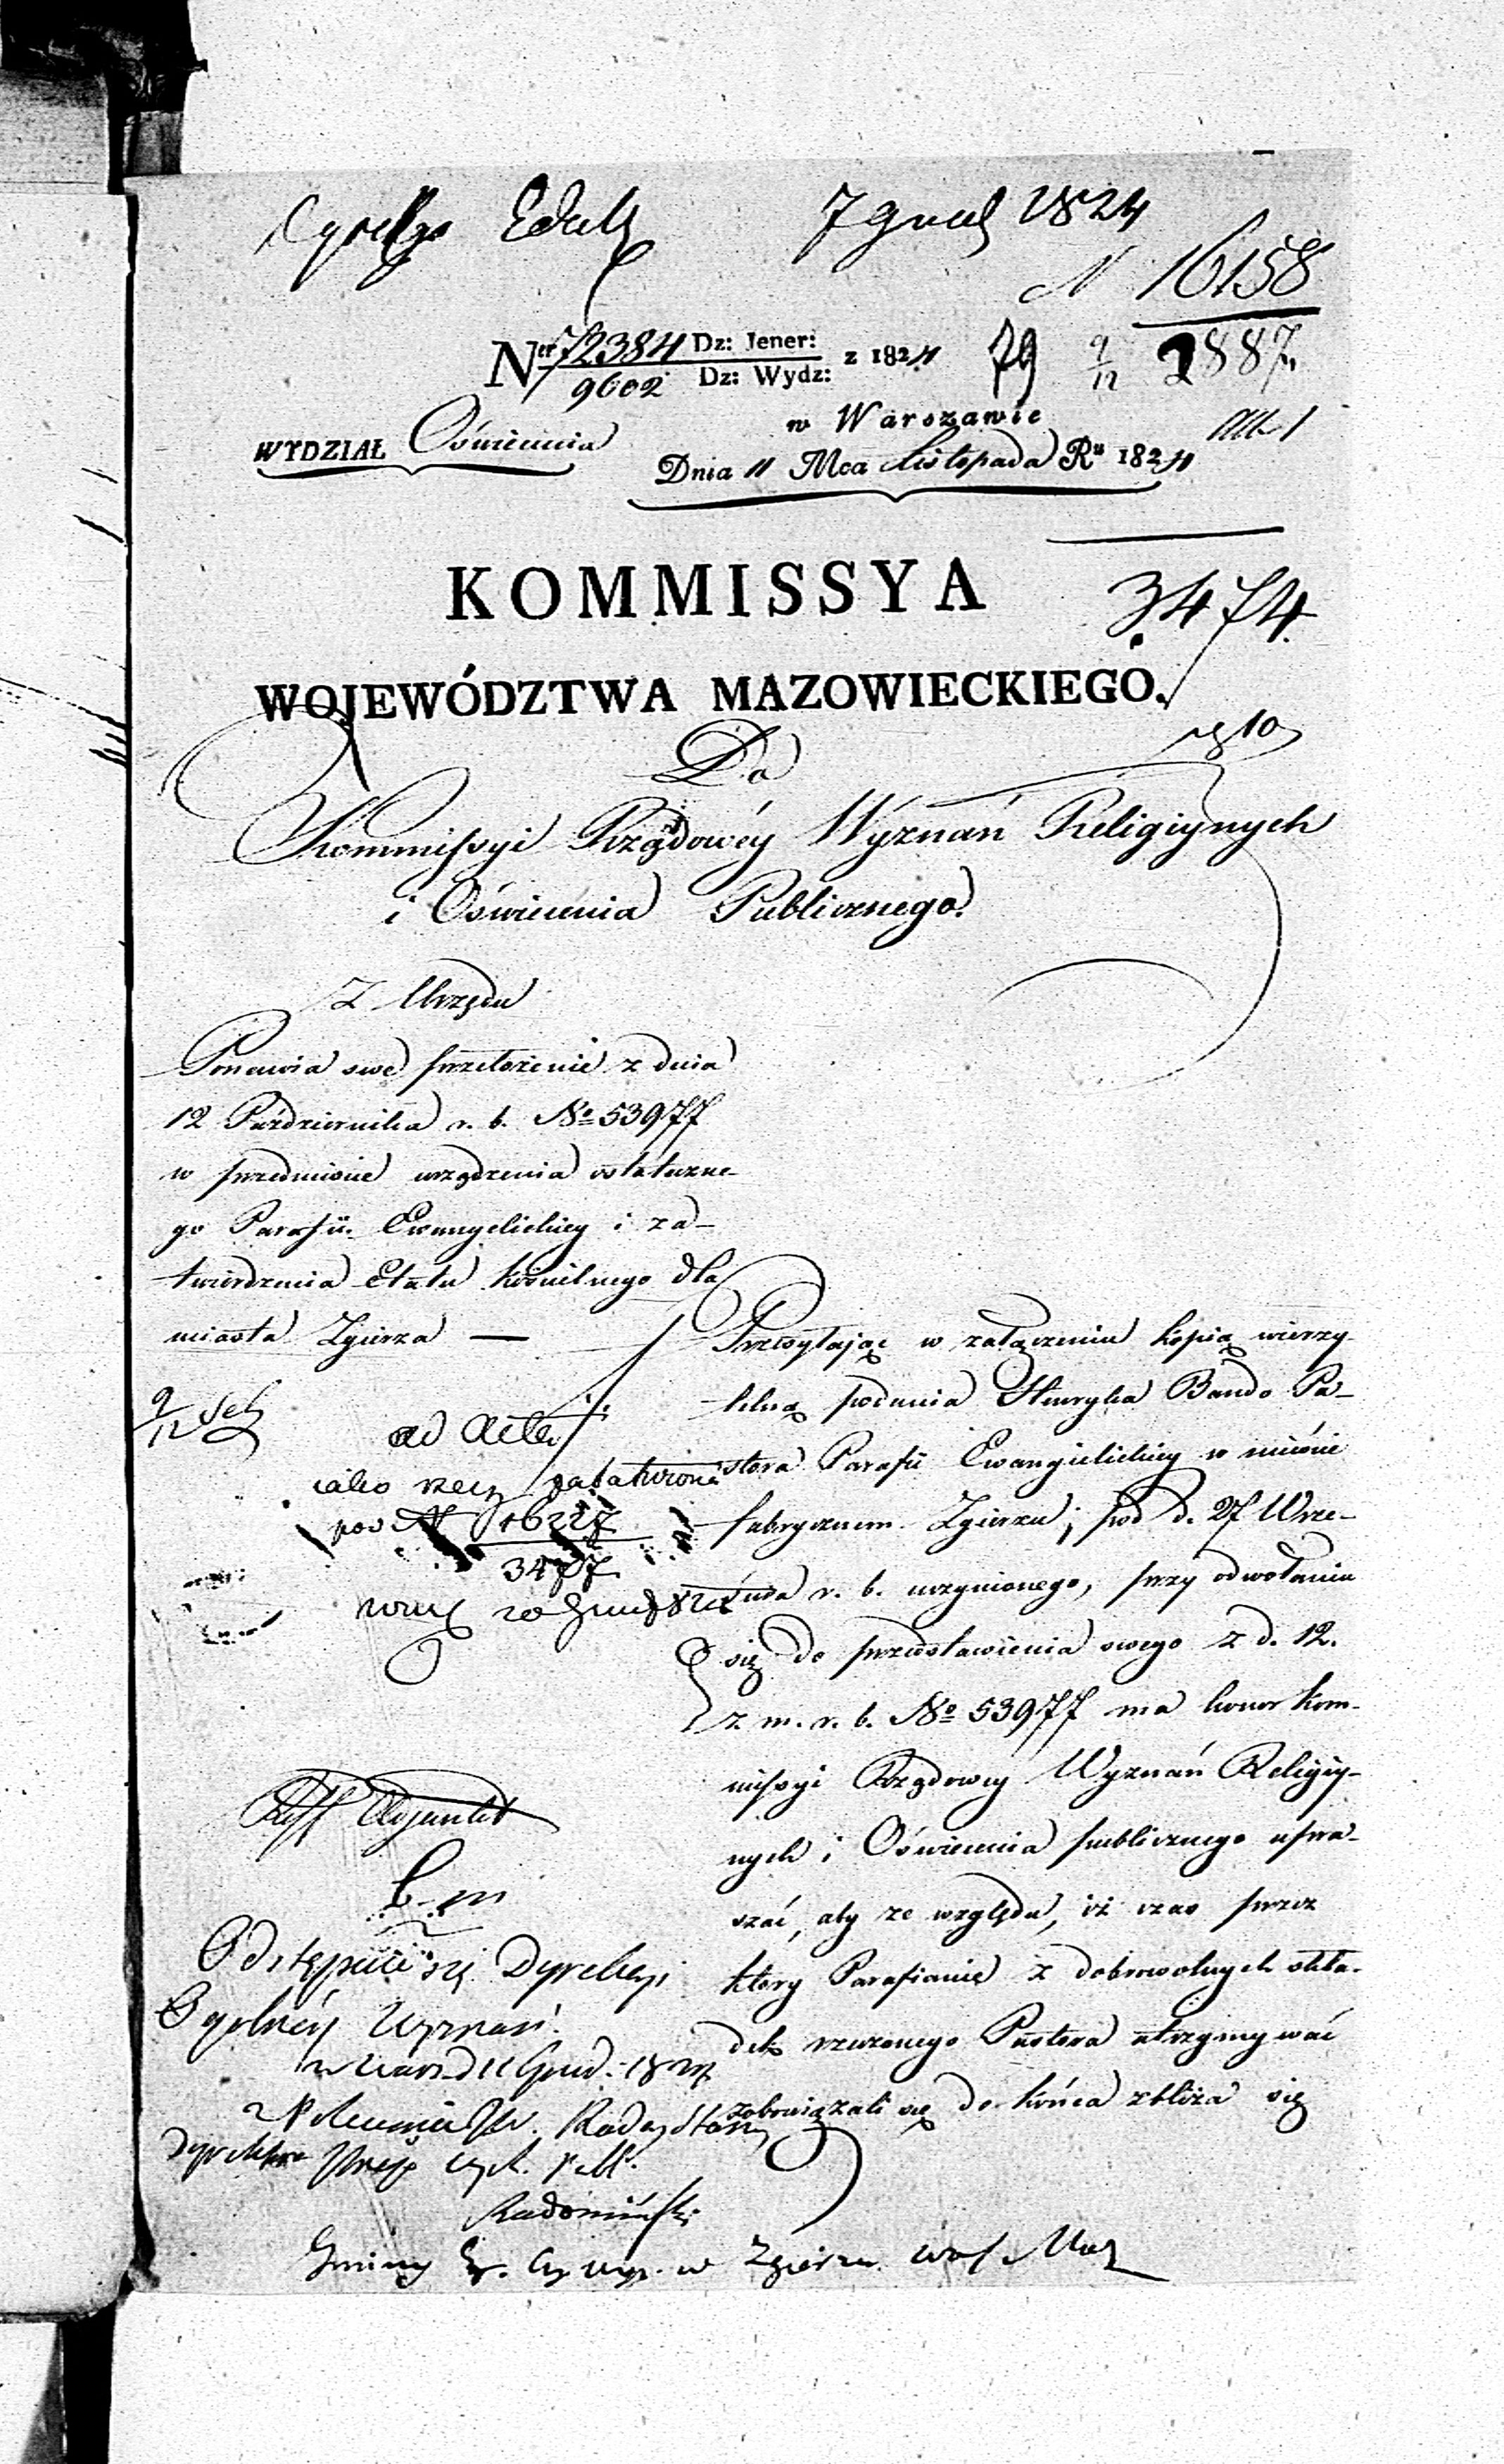 7 1824
N 16158
2887
Ner 72384 Dz: Jener: z 1824 79 9/12
9602 Dz: Wydz:
w Warszawie
WYDZIAŁ Oświecenia
Dnia 11 Mca Listopada Ru 1824
KOMMISSYA
3474.
WOJEWÓDZTWA MAZOWIECKIEGO.
Do
Kommissyi Rządowéy Wyznań Religiynych
i Oświecenia Publicznego.
Z Urzędu
Ponawia swe przełożenie z dnia
12 Października r. b. No 53977
w przedmiocie urządzenia ostateczne-
go Parafii Ewangelickiey i za-
twierdzenia Etatu kościelnego dla
miasta Zgierza —
Przesyłając w załączeniu kopią wierzy-
telną podania Henryka Bando Pa-
stora Parafii Ewangielickiey w mieście
fabrycznem Zgierzu, pod d. 27 Wrze-
śnia r. b. uczynionego, przy odwołaniu
się do przedstawienia swego z d. 12.
z. m. r. b. No 53977 ma honor Kom-
missyi Rządowey Wyznań Religiy-
nych i Oświecenia publicznego upra-
szać, aby ze względu, iż czas przez
który Parafianie z dobrowolnych skła-
dek rzeczonego Pastora utrzymywać
zobowiązali się do końca zbliża się
9/12
ad Acta
iako rzecz załatwiona
pod N 16227
3477
Odstępuie się Dyrekcyi
Ogólnéy Wyznań.
w Warsz d 11 Grud. 1824
z Polecenia JW. Radcy Stanu
Dyrektora
Radomiński
Gminy w Zgierzu